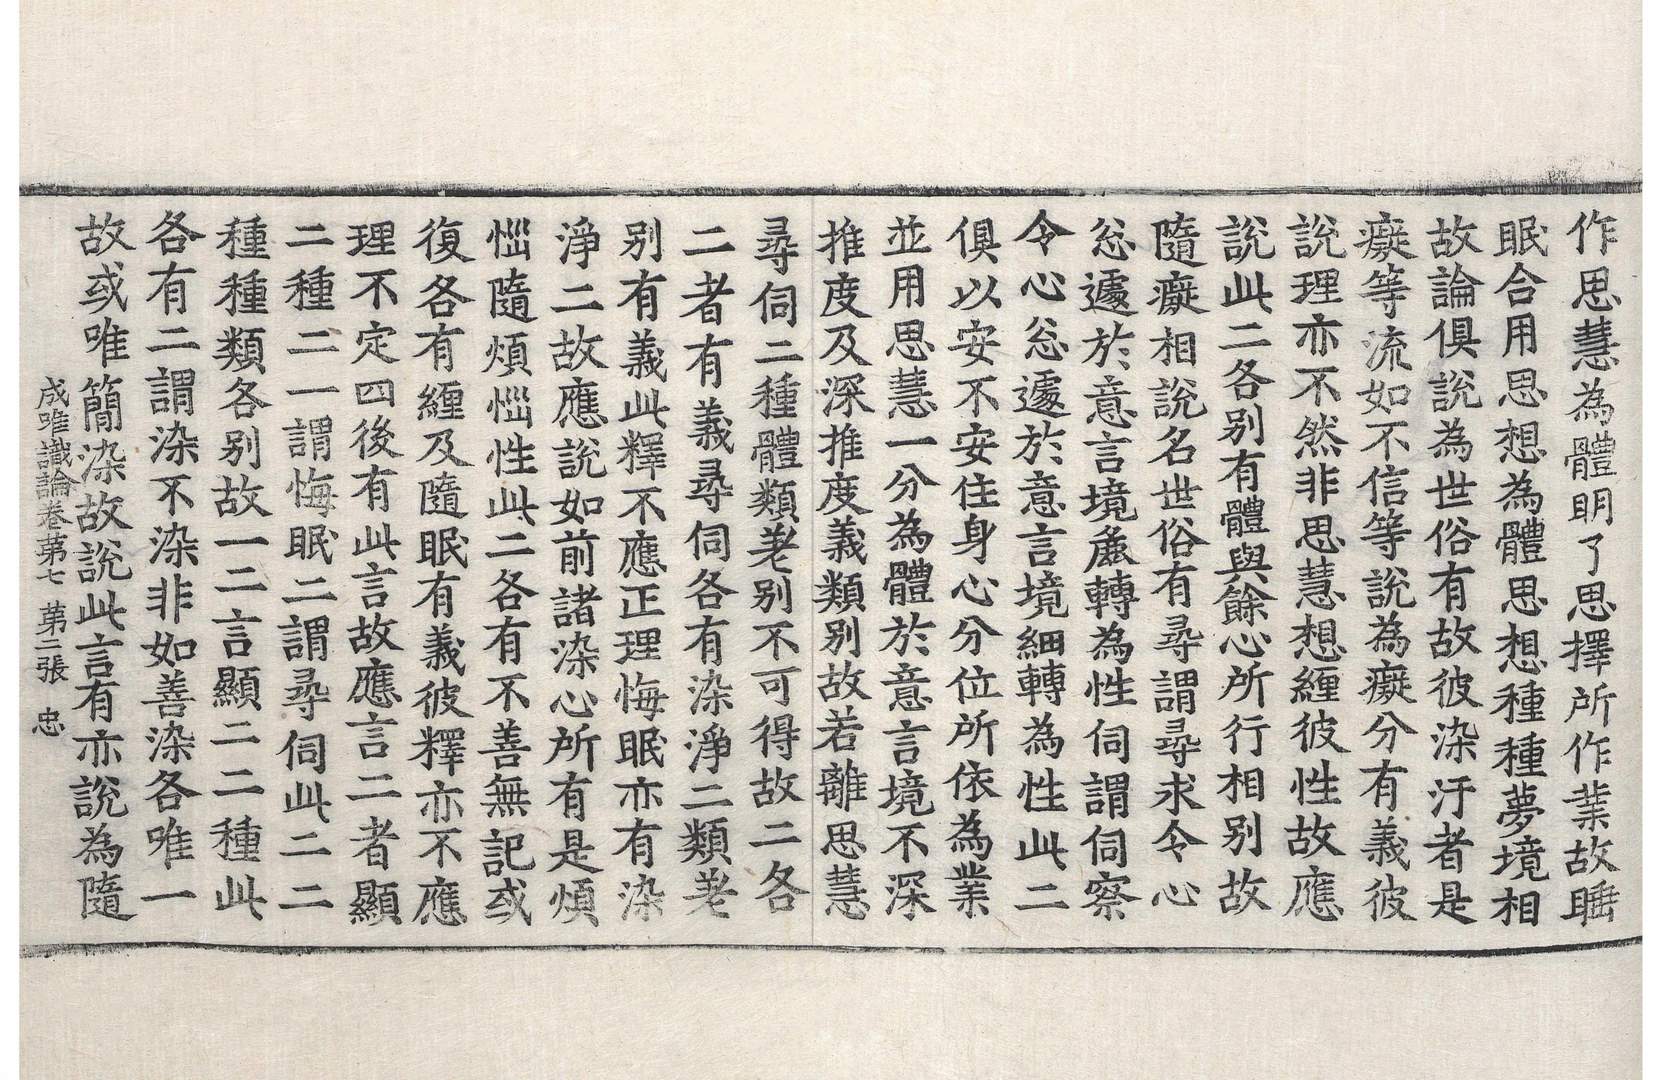 作思慧為體明了思擇所作業故睡
眠合用思想為體思想種種夢境相
故論俱說為世俗有故彼染汙者是
癡等流如不信等說為癡分有義彼
說理亦不然非思慧想纏彼性故應
說此二各別有體與餘心所行相別故
隨癡相說名世俗有尋謂尋求令心
忩遽於意言境麁轉為性伺謂伺察
令心忩遽於意言境細轉為性此二
俱以安不安住身心分位所依為業
並用思慧一分為體於意言境不深
推度及深推度義類別故若離思慧
尋伺二種體類差別不可得故二各
二者有義尋伺各有染淨二類差
別有義此釋不應正理悔眠亦有染
淨二故應說如前諸染心所有是煩
惱隨煩惱性此二各有不善無記或
復各有纏及隨眠有義彼釋亦不應
理不定四後有此言故應言二者顯
二種二一謂悔眠二謂尋伺此二二
種種類各別故一二言顯二二種此
各有二謂染不染非如善染各唯一
故或唯簡染故說此言有亦說為隨
成唯識論卷苐七 苐二張 忠